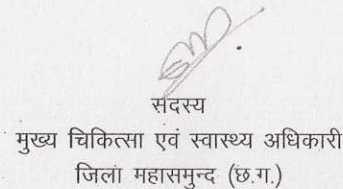 सदस्य
मुख्य चिकित्सा एवं स्वास्थ्य अधिकारी
जिला महासमुन्द (छ.ग.)